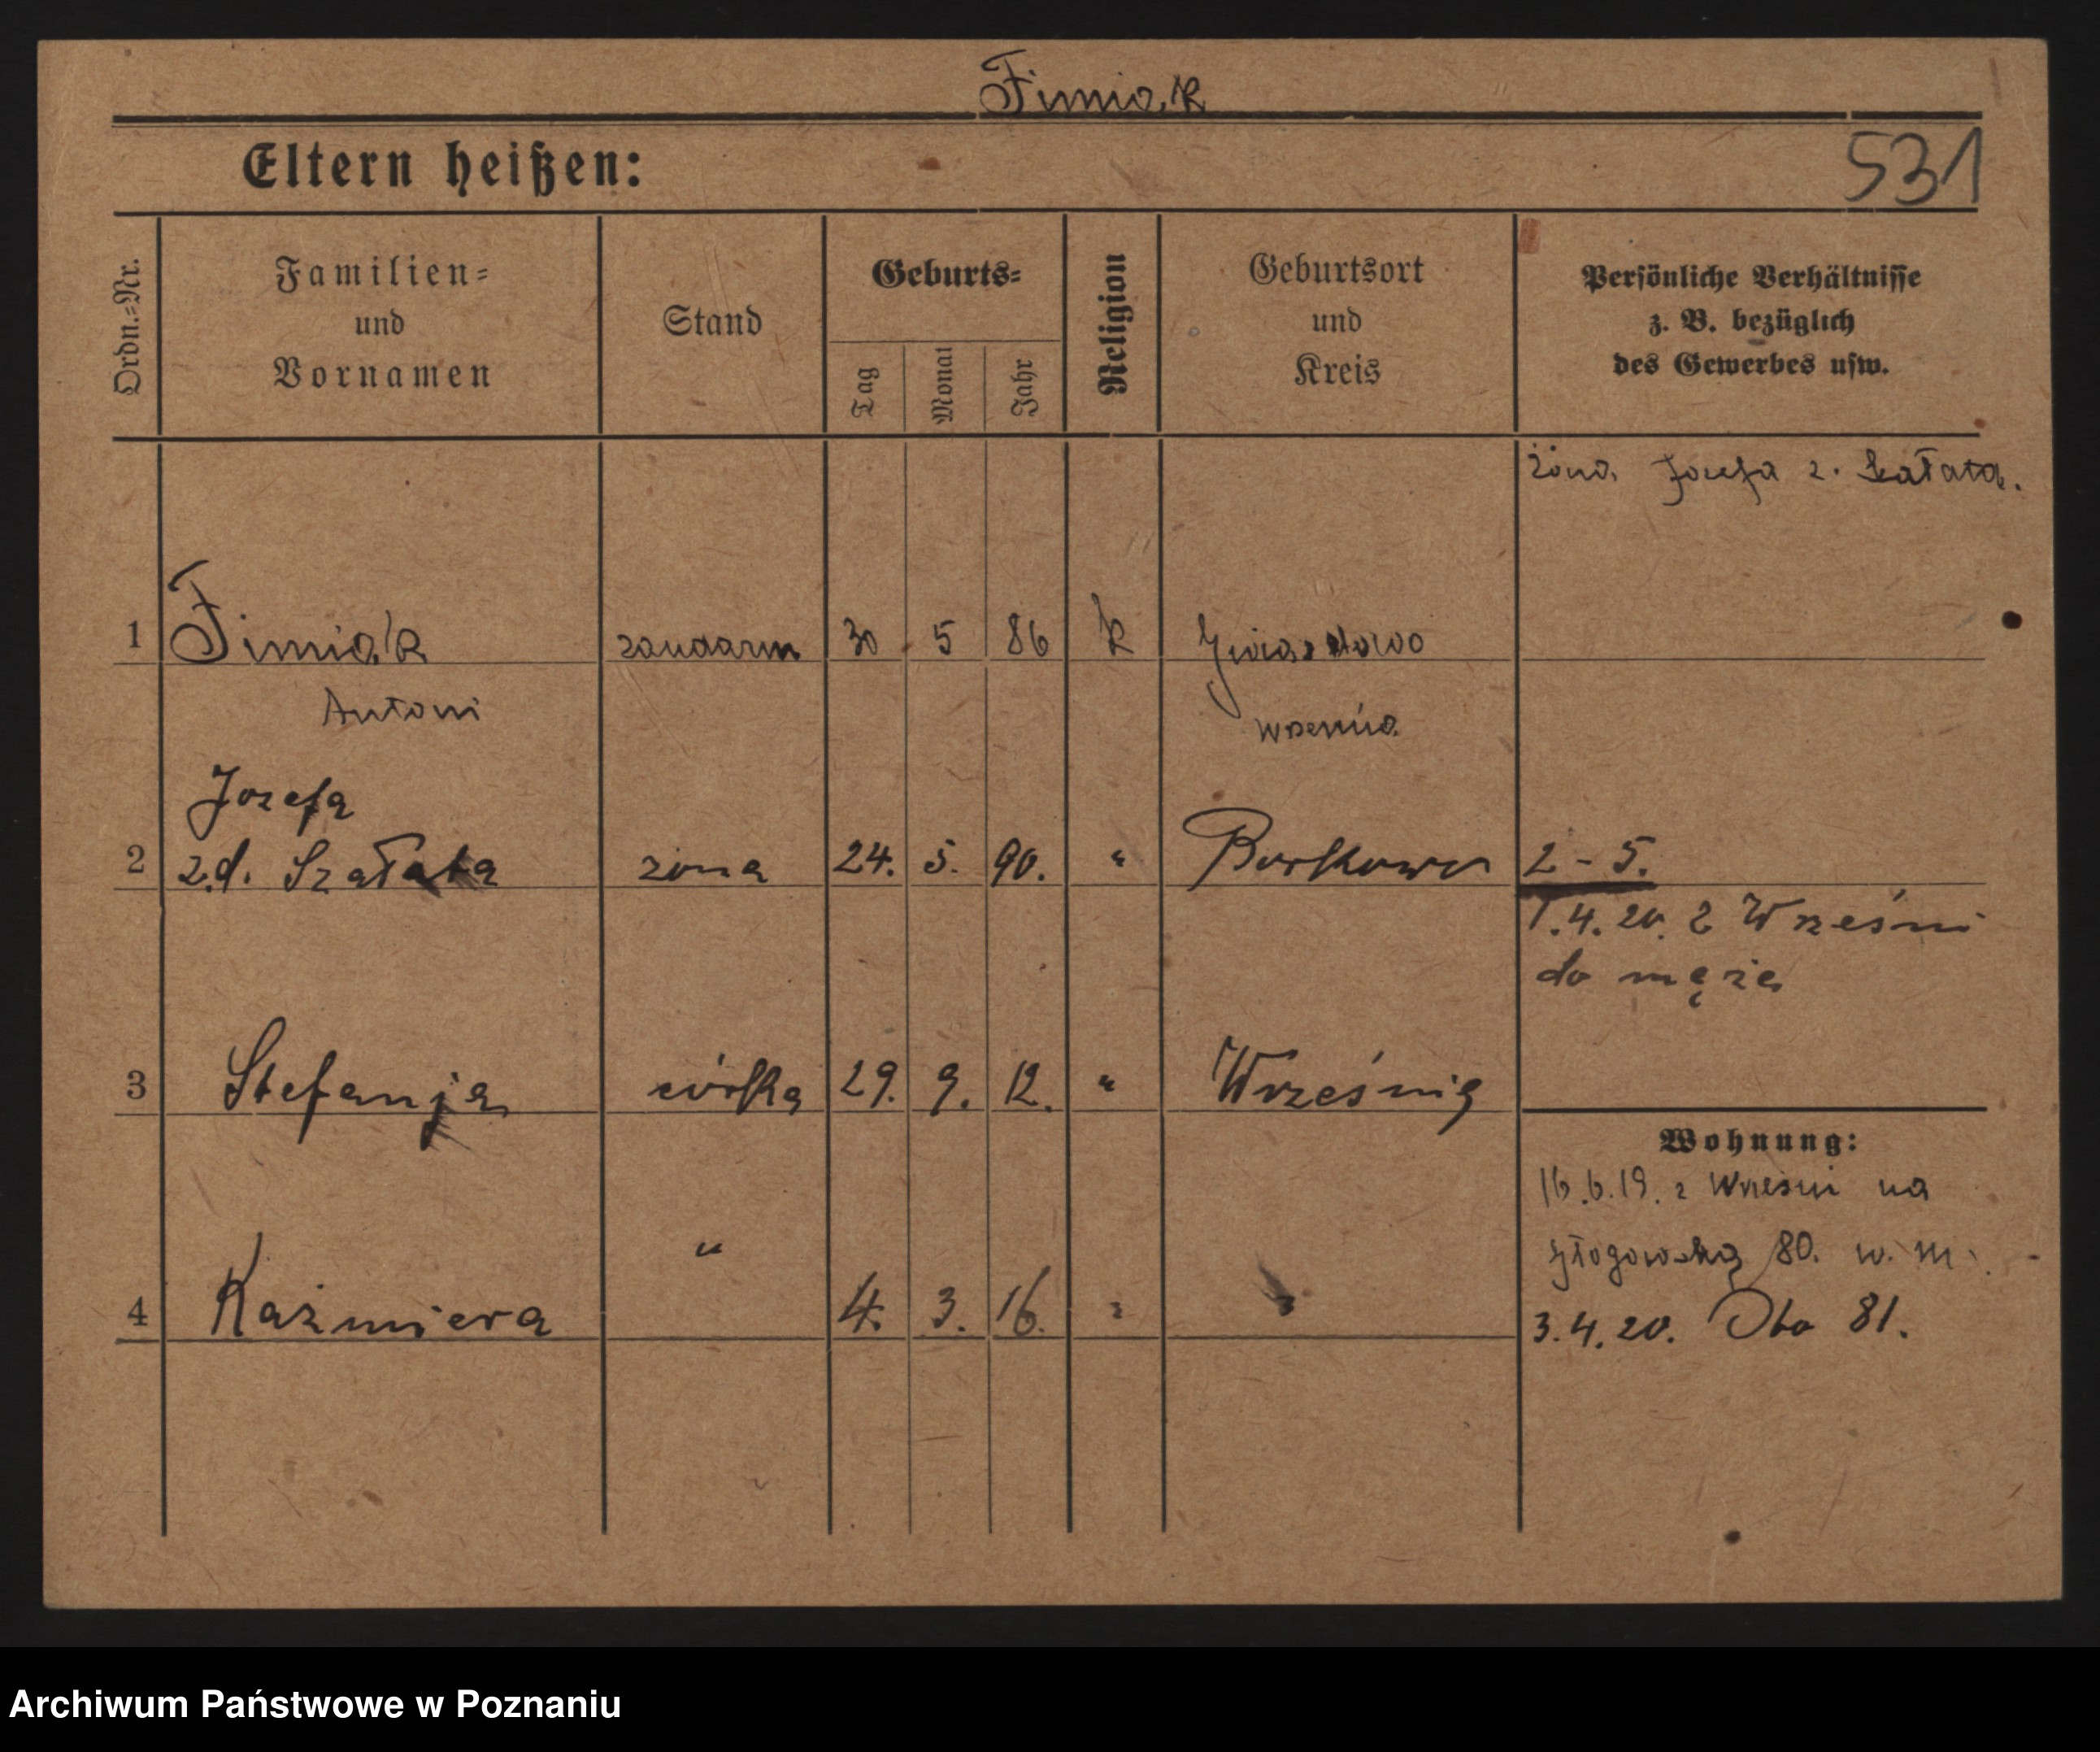 Fimiak
Eltern heißen:
531
Ordn.-Nr.
Familien-
und
Vornamen
Stand
Geburts-
Tag
Monat
Jahr
Religion
Geburtsort
und
Kreis
Persönliche Verhältnisse
z. B. bezüglich
des Gewerbes usw.
żona Jozefa z. Szałata.
1 Fimiak żandarm 30 5 86 k Gwiazdowo
Antoni Wrzesnia
Jozefa
2 z.d. Szałata żona 24. 5. 90. " Borkowo 2-5.
1.4.20. z Wrześni
do męża
3 Stefanja córka 29. 9. 12. " Września
Wohnung:
16.6.19. z Wrzesni na
Głogowską 80. w. m.
4 Kaźmiera " 4. 3. 16. " " 3.4.20. Oba 81.
Archiwum Państwowe w Poznaniu